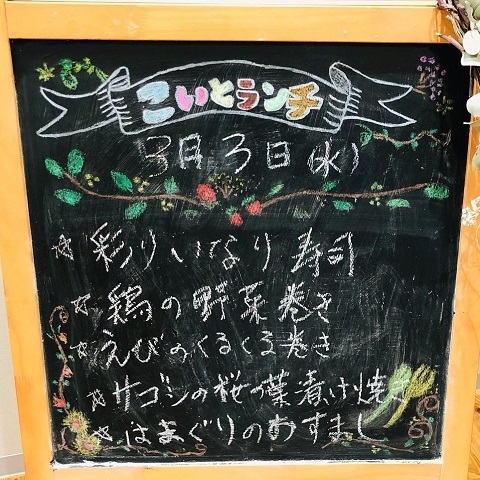 こいとランチ
3月3日(水)
☆彩りいなり寿司
☆鶏の野菜巻き
☆えびのくるくる巻き
☆サゴシの桜の葉漬け焼き
☆はまぐりのおすまし